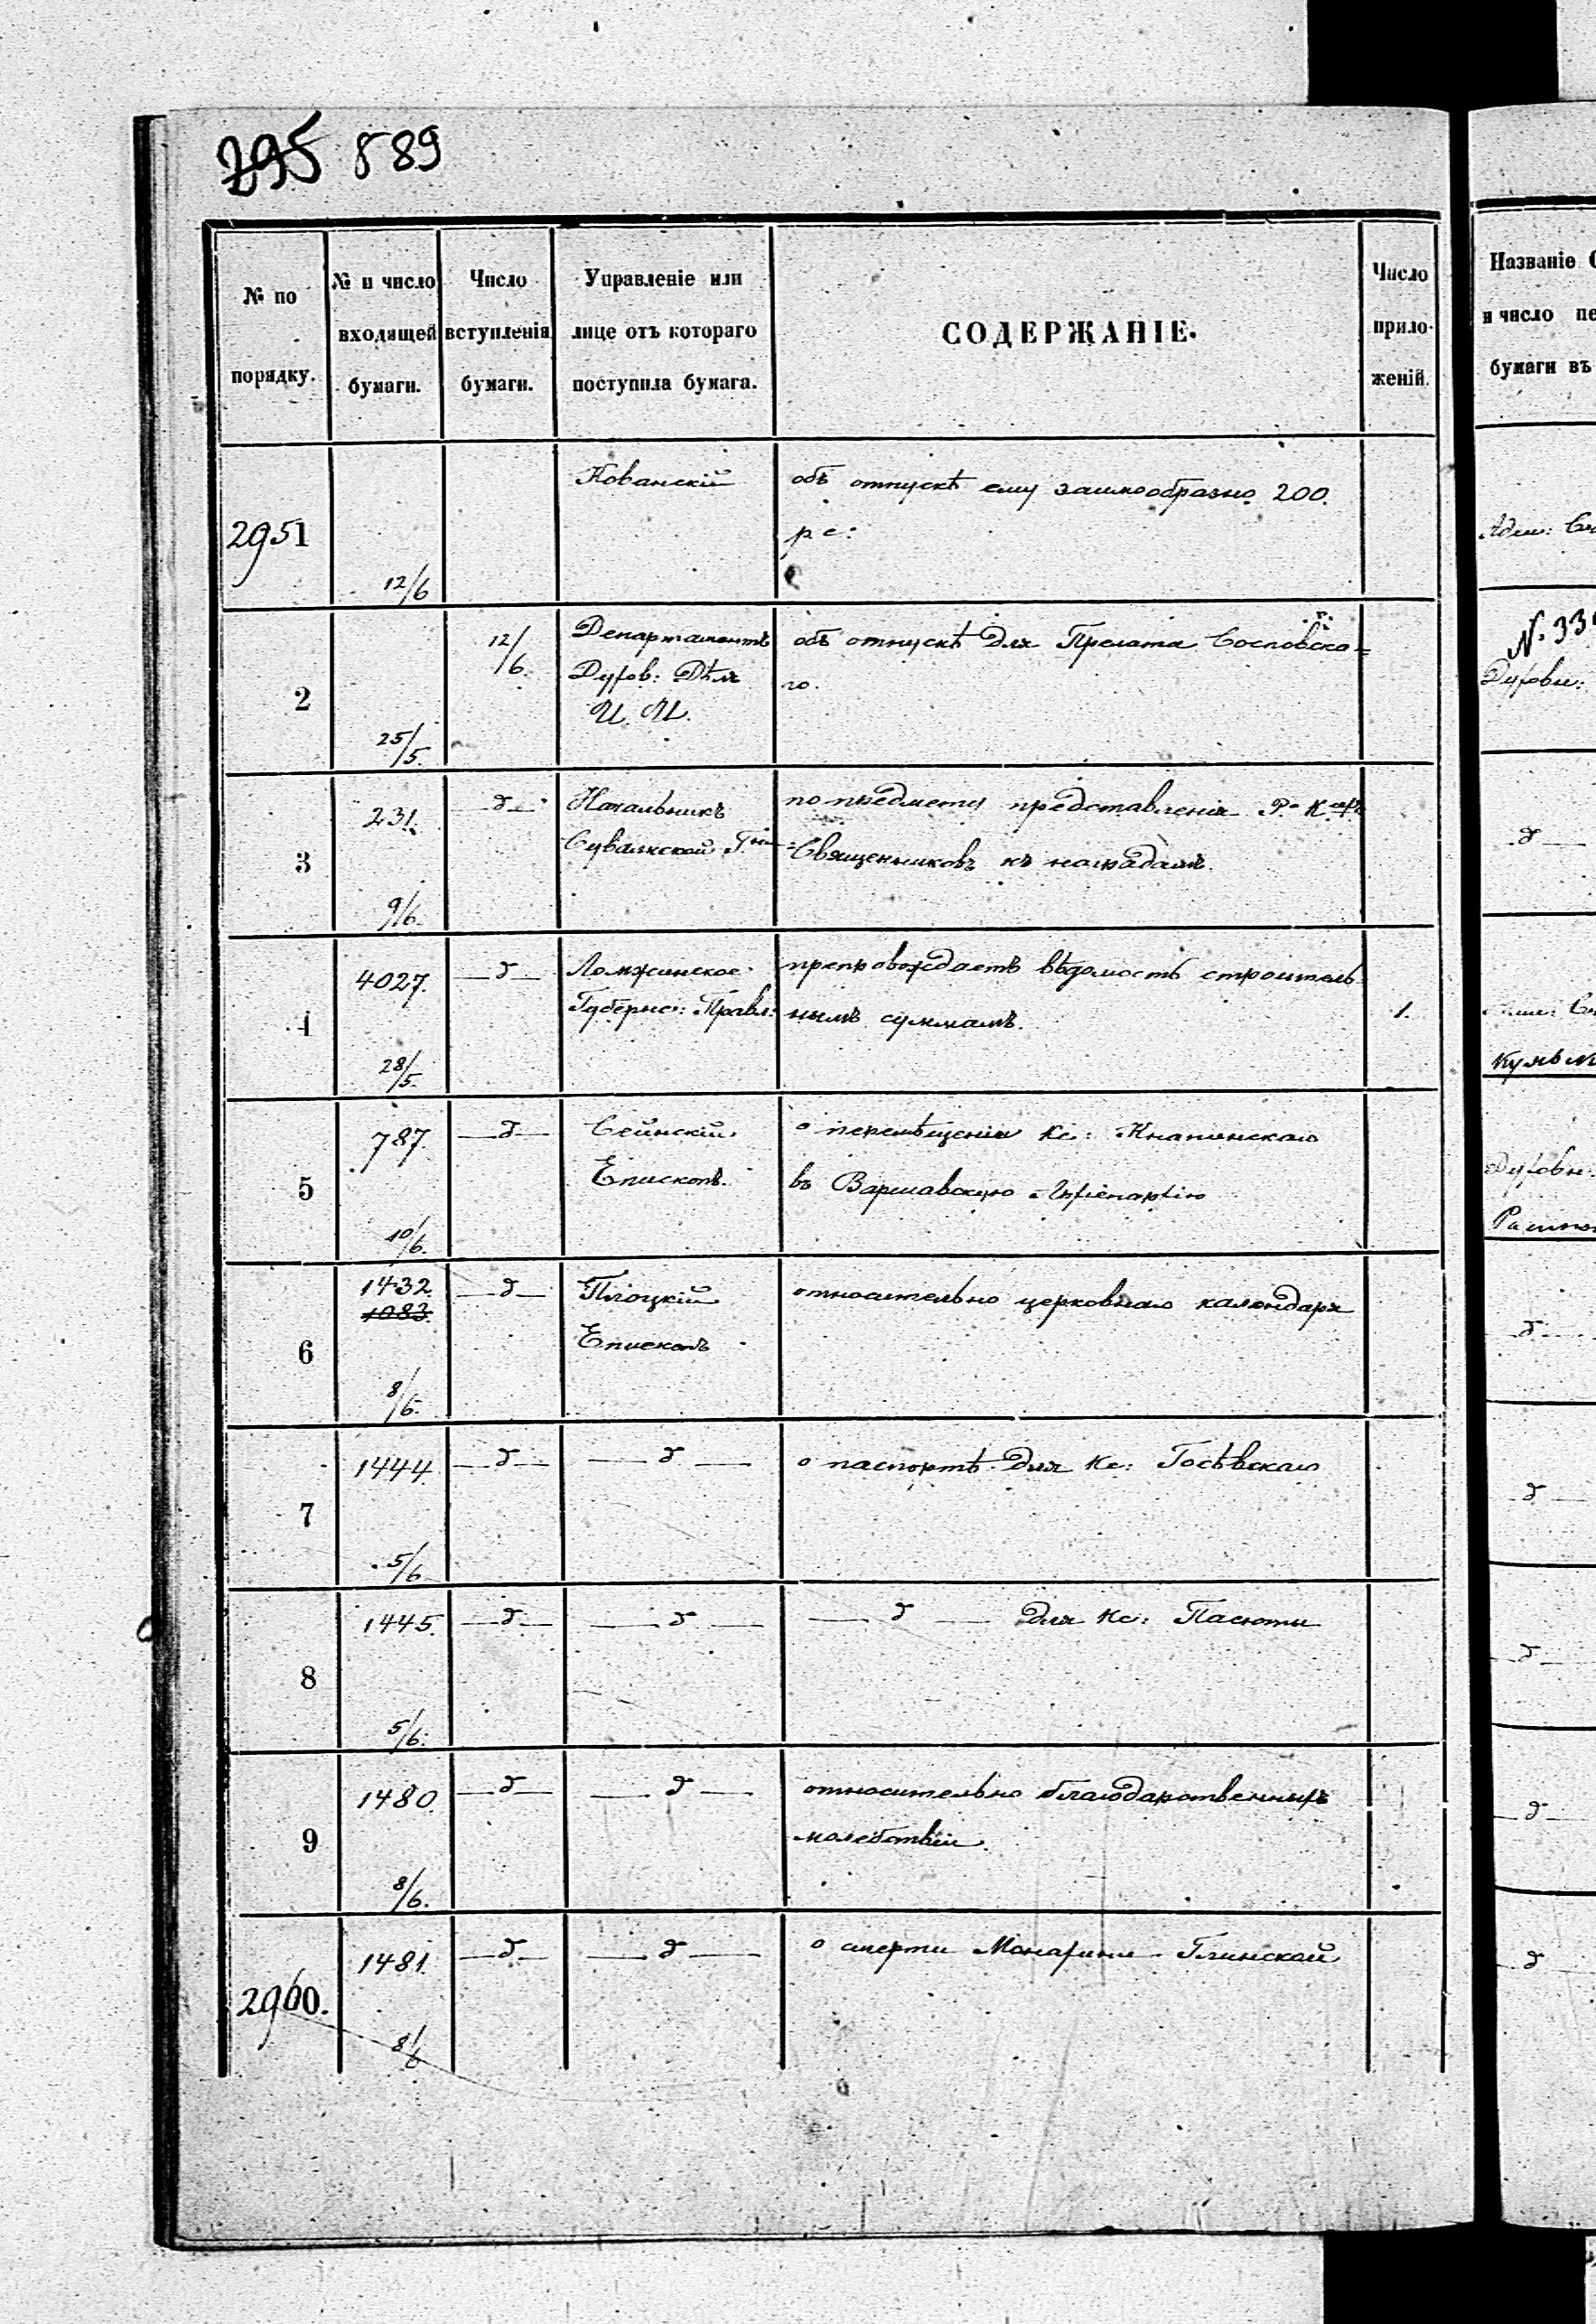 295 889
№ по порядку.
№ и число входящей бумаги.
Число вступленія бумаги.
Управленіе или лице отъ котораго поступила бумага.
СОДЕРЖАНІЕ.
Число прило- женій.
2951 12/6 Кованскій объ отпускѣ ему заимообразно 200.
р с:
2 25/5. 12/6. Департаментъ объ отпускѣ для Прелата Сосновска=
Духов: Дѣлъ го.
И. И.
3 231. 9/6. —д— Начальникъ по предмету представленія Р. К.
Сувалкской Священниковъ къ наградамъ.
4 4027. 28/5. —д— Ломжинское препровождаетъ вѣдомость строитель 1.
Губернс: Правл: нымъ суммамъ.
5 787. 10/6. —д— Сейнскій о перемѣщеніи Кс: Кнапинскаго
Епископъ. въ Варшавскую Архіепархію
6 1432. 1083. 8/6. —д— Плоцкій относительно церковнаго календаря
Епископъ
7 1444 5/6 —д— —д— о паспортѣ для Кс: Госѣвскаго
8 1445. 5/6. —д— —д— —д— для Кс: Пасюты
9 1480. 8/6. —д— —д— относительно благодарственныхъ
молебствій.
2960. 1481. 8/6 —д— —д— о смерти Монахини Глинской
Названіе
и число пе
бумаги въ
Адми:
N. 33
Духовн:
д
Духовн:
д
д
д
д
д